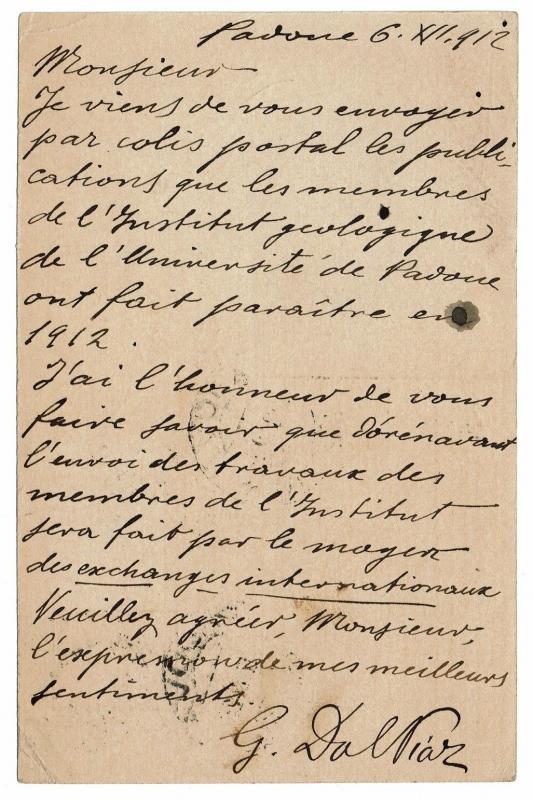 Padoue 6. XII. 912
Monsieur
Je viens de vous envoyer
par colis postal les publi-
cations que les membres
de l'Institut geologique
de l'Université de Padoue
ont fait paraître en
1912.
J'ai l'honneur de vous
faire savoir que dórénavant
l'envoi des travaux des
membres de l'Institut
sera fait par le moyen
des exchanges internationaux
Veuillez agréer, Monsieur,
l'expression de mes meilleurs
sentiments.
G. Dal Piaz